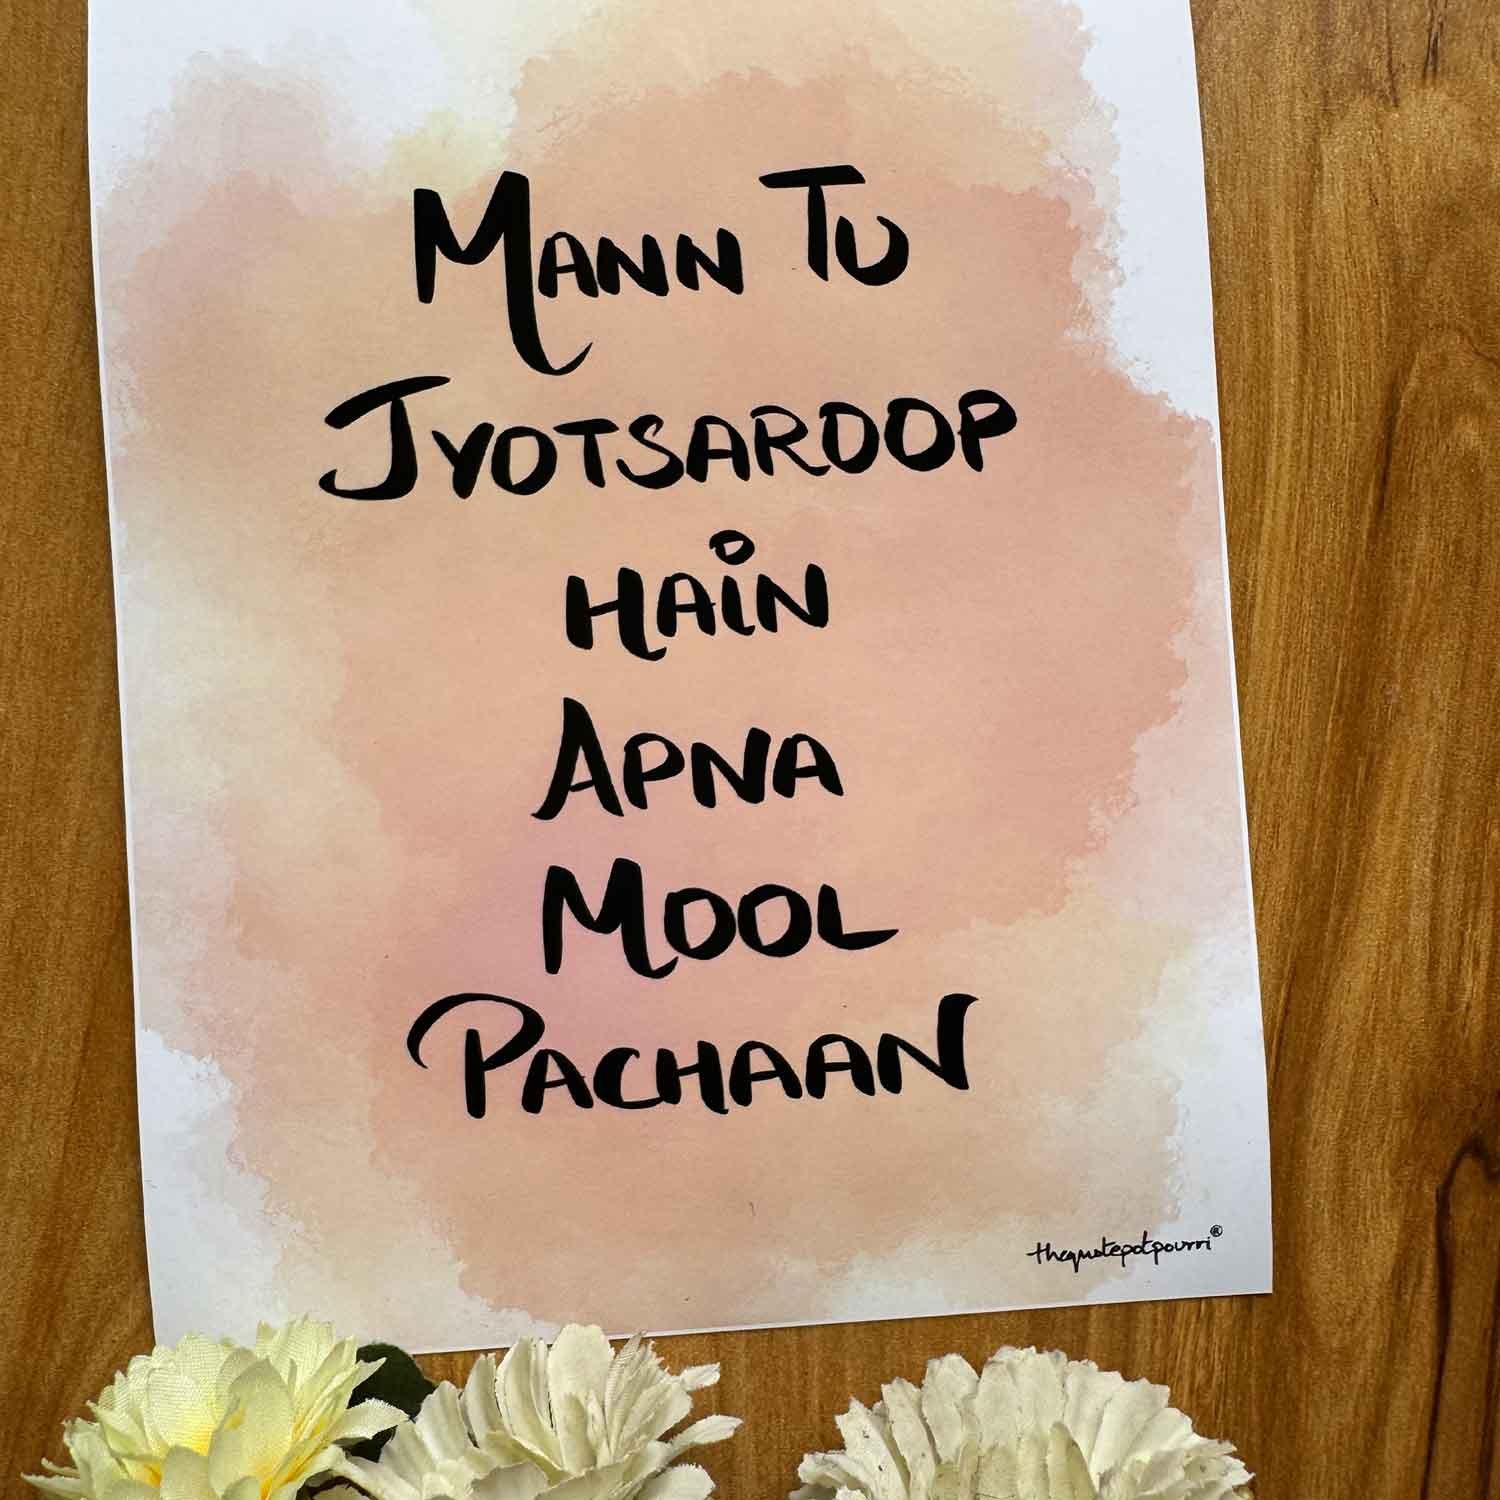 Mann Tu
Jyotsaroop
Hain
Apna
Mool
Pachaan
thequotepotpourri®